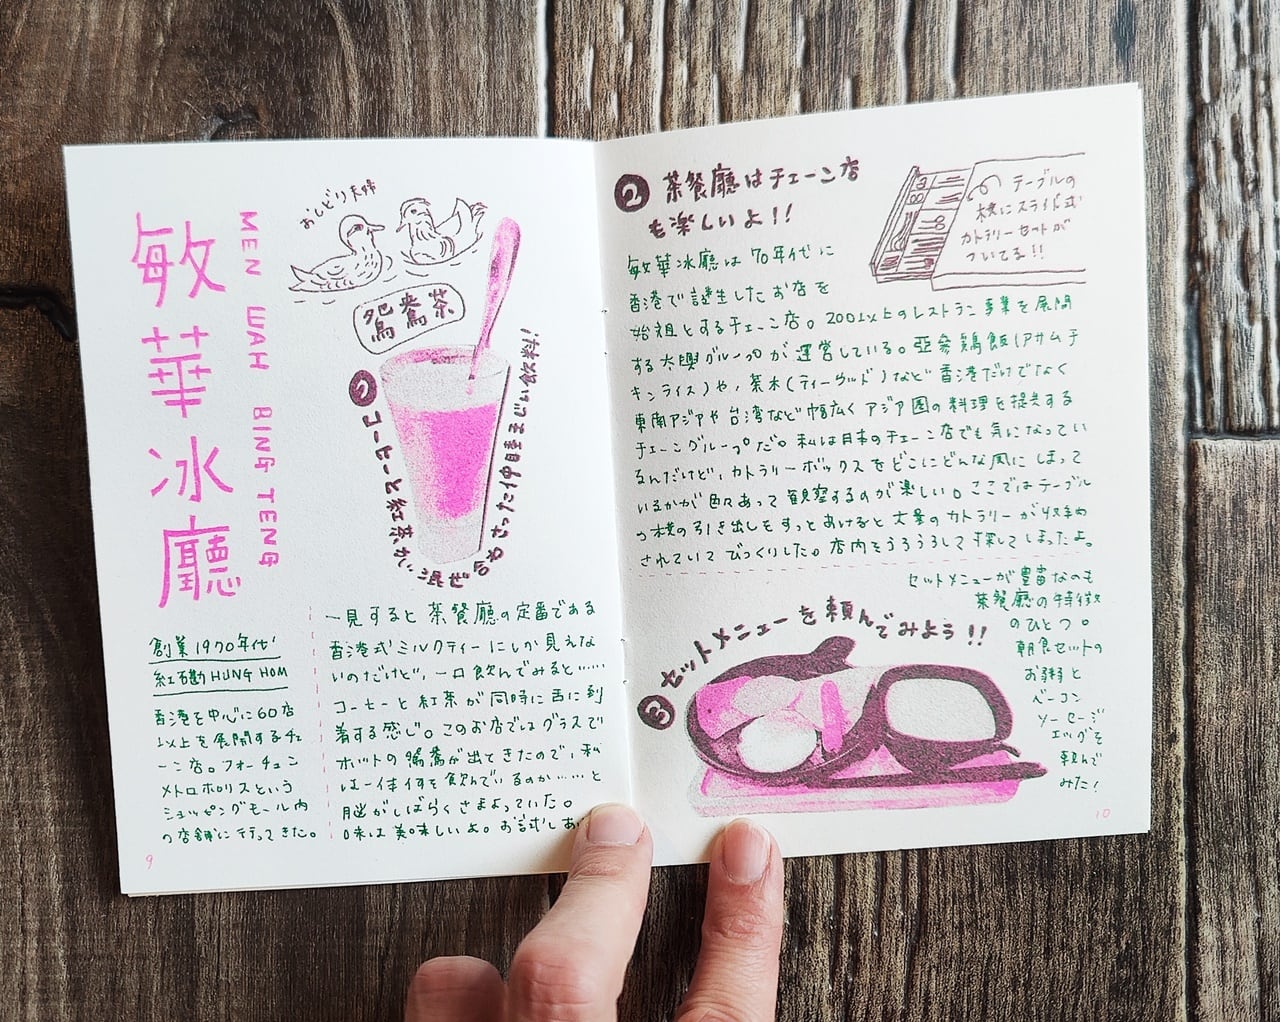 敏華冰廳
MEN WAH BING TENG
創業1970年代
紅磡 HUNG HOM
香港を中心に60店
以上を展開するチェ
ーン店。フォーチュン
メトロポリスという
ショッピングモール内
の店舗に行ってきた。
9
おしどり夫婦
鴛鴦茶
① コーヒーと紅茶がい混ぜ合わさった不思議まじい飲料!
一見すると茶餐廳の定番である
香港式ミルクティーにしか見えな
いのだけど、一口飲んでみると……
コーヒーと紅茶が同時に舌に到
着する感じ。このお店ではグラスで
ホットの鴛鴦が出てきたので、私
は一体何を飲んでいるのか……と
脳がしばらくさまよっていた。
味は美味しいよ。お試しあ
② 茶餐廳はチェーン店
も楽しいよ!!
テーブルの
横にスライド式
カトラリーセットが
ついてる!!
敏華冰廳は70年代に
香港で誕生したお店を
始祖とするチェーン店。200以上のレストラン事業を展開
する太興グループが運営している。亞參鶏飯(アサムチ
キンライス)や、茶木(ティーウッド)など香港だけでなく
東南アジアや台湾など幅広くアジア圏の料理を提供する
チェーングループだ。私は日本のチェーン店でも気になってい
るんだけど、カトラリーボックスをどこにどんな風にしまって
いるかが色々あって観察するのが楽しい。ここではテーブル
の横の引き出しをすっとあけると大量のカトラリーが収納
されていてびっくりした。店内をうろうろして探してしまったよ。
③ セットメニューを頼んでみよう!!
セットメニューが豊富なのも
茶餐廳の特徴
のひとつ。
朝食セットの
お粥と
ベーコン
ソーセージ
エッグを
頼んで
みた!
10